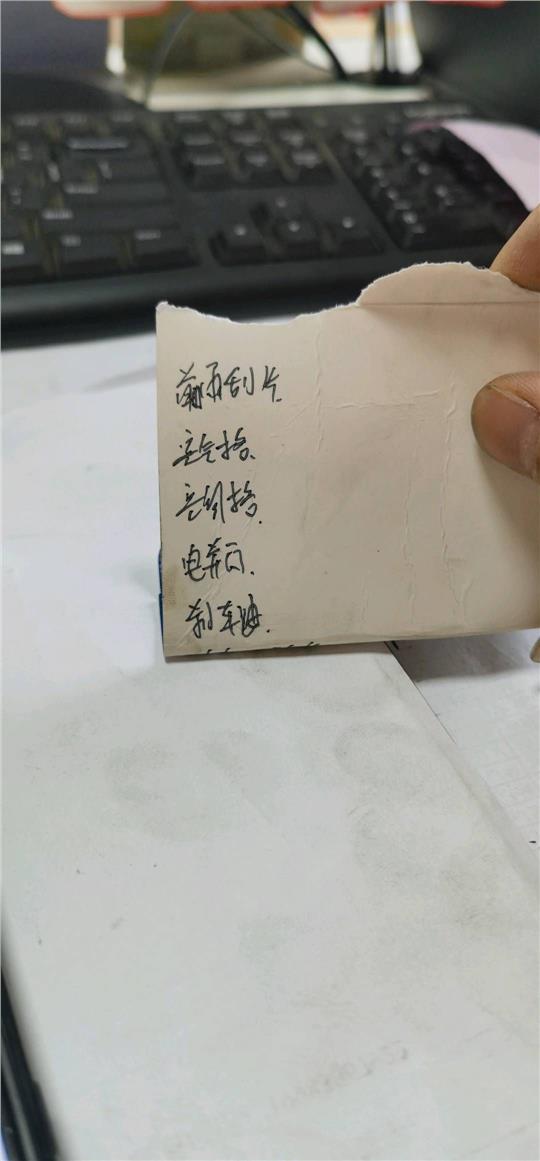 前雨刮片.
空气格.
空调格.
电瓶.
刹车油.